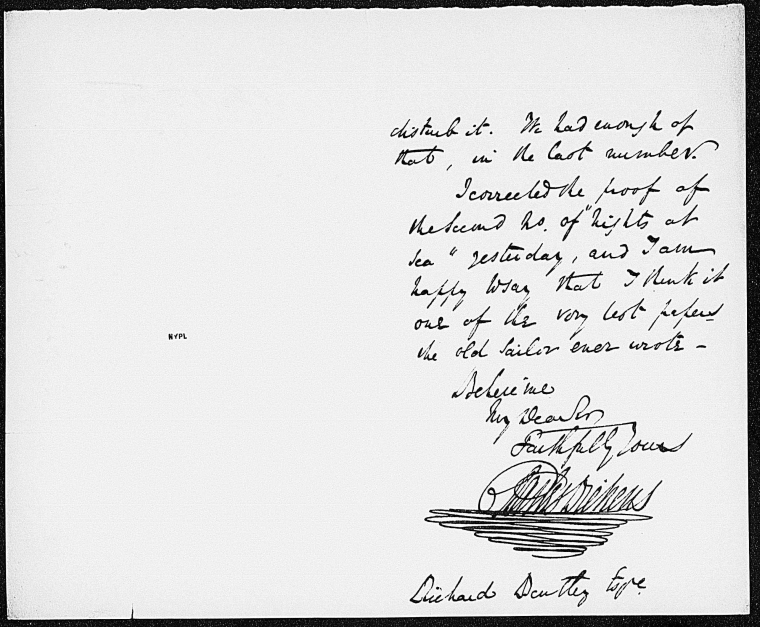 disturb it. We had enough of
that, in the last number.
I corrected the proof of
the Second No. of "Nights at
Sea" yesterday, and I am
happy to say that I think it
one of the very best papers
the old Sailor ever wrote –
Believe me
My Dear Sir
Faithfully Yours
Charles Dickens
Richard Bentley Esqre.
NYPL